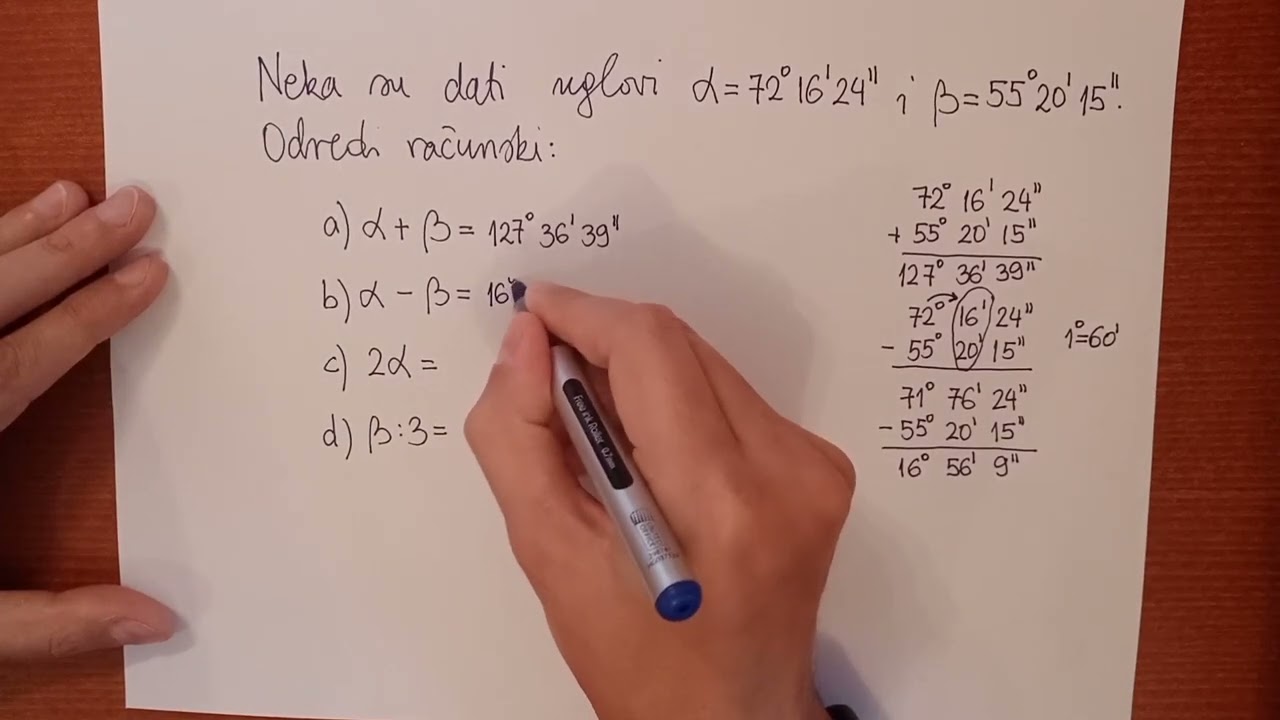 Neka su dati uglovi α=72°16'24" i β=55°20'15".
Odredi računski:
a) α + β = 127°36'39"
b) α - β = 16°
c) 2α =
d) β:3=
72° 16' 24"
+ 55° 20' 15"
127° 36' 39"
72° 16' 24"
- 55° 20' 15"
1°=60'
71° 76' 24"
- 55° 20' 15"
16° 56' 9"
Free ink Roller 0.7mm